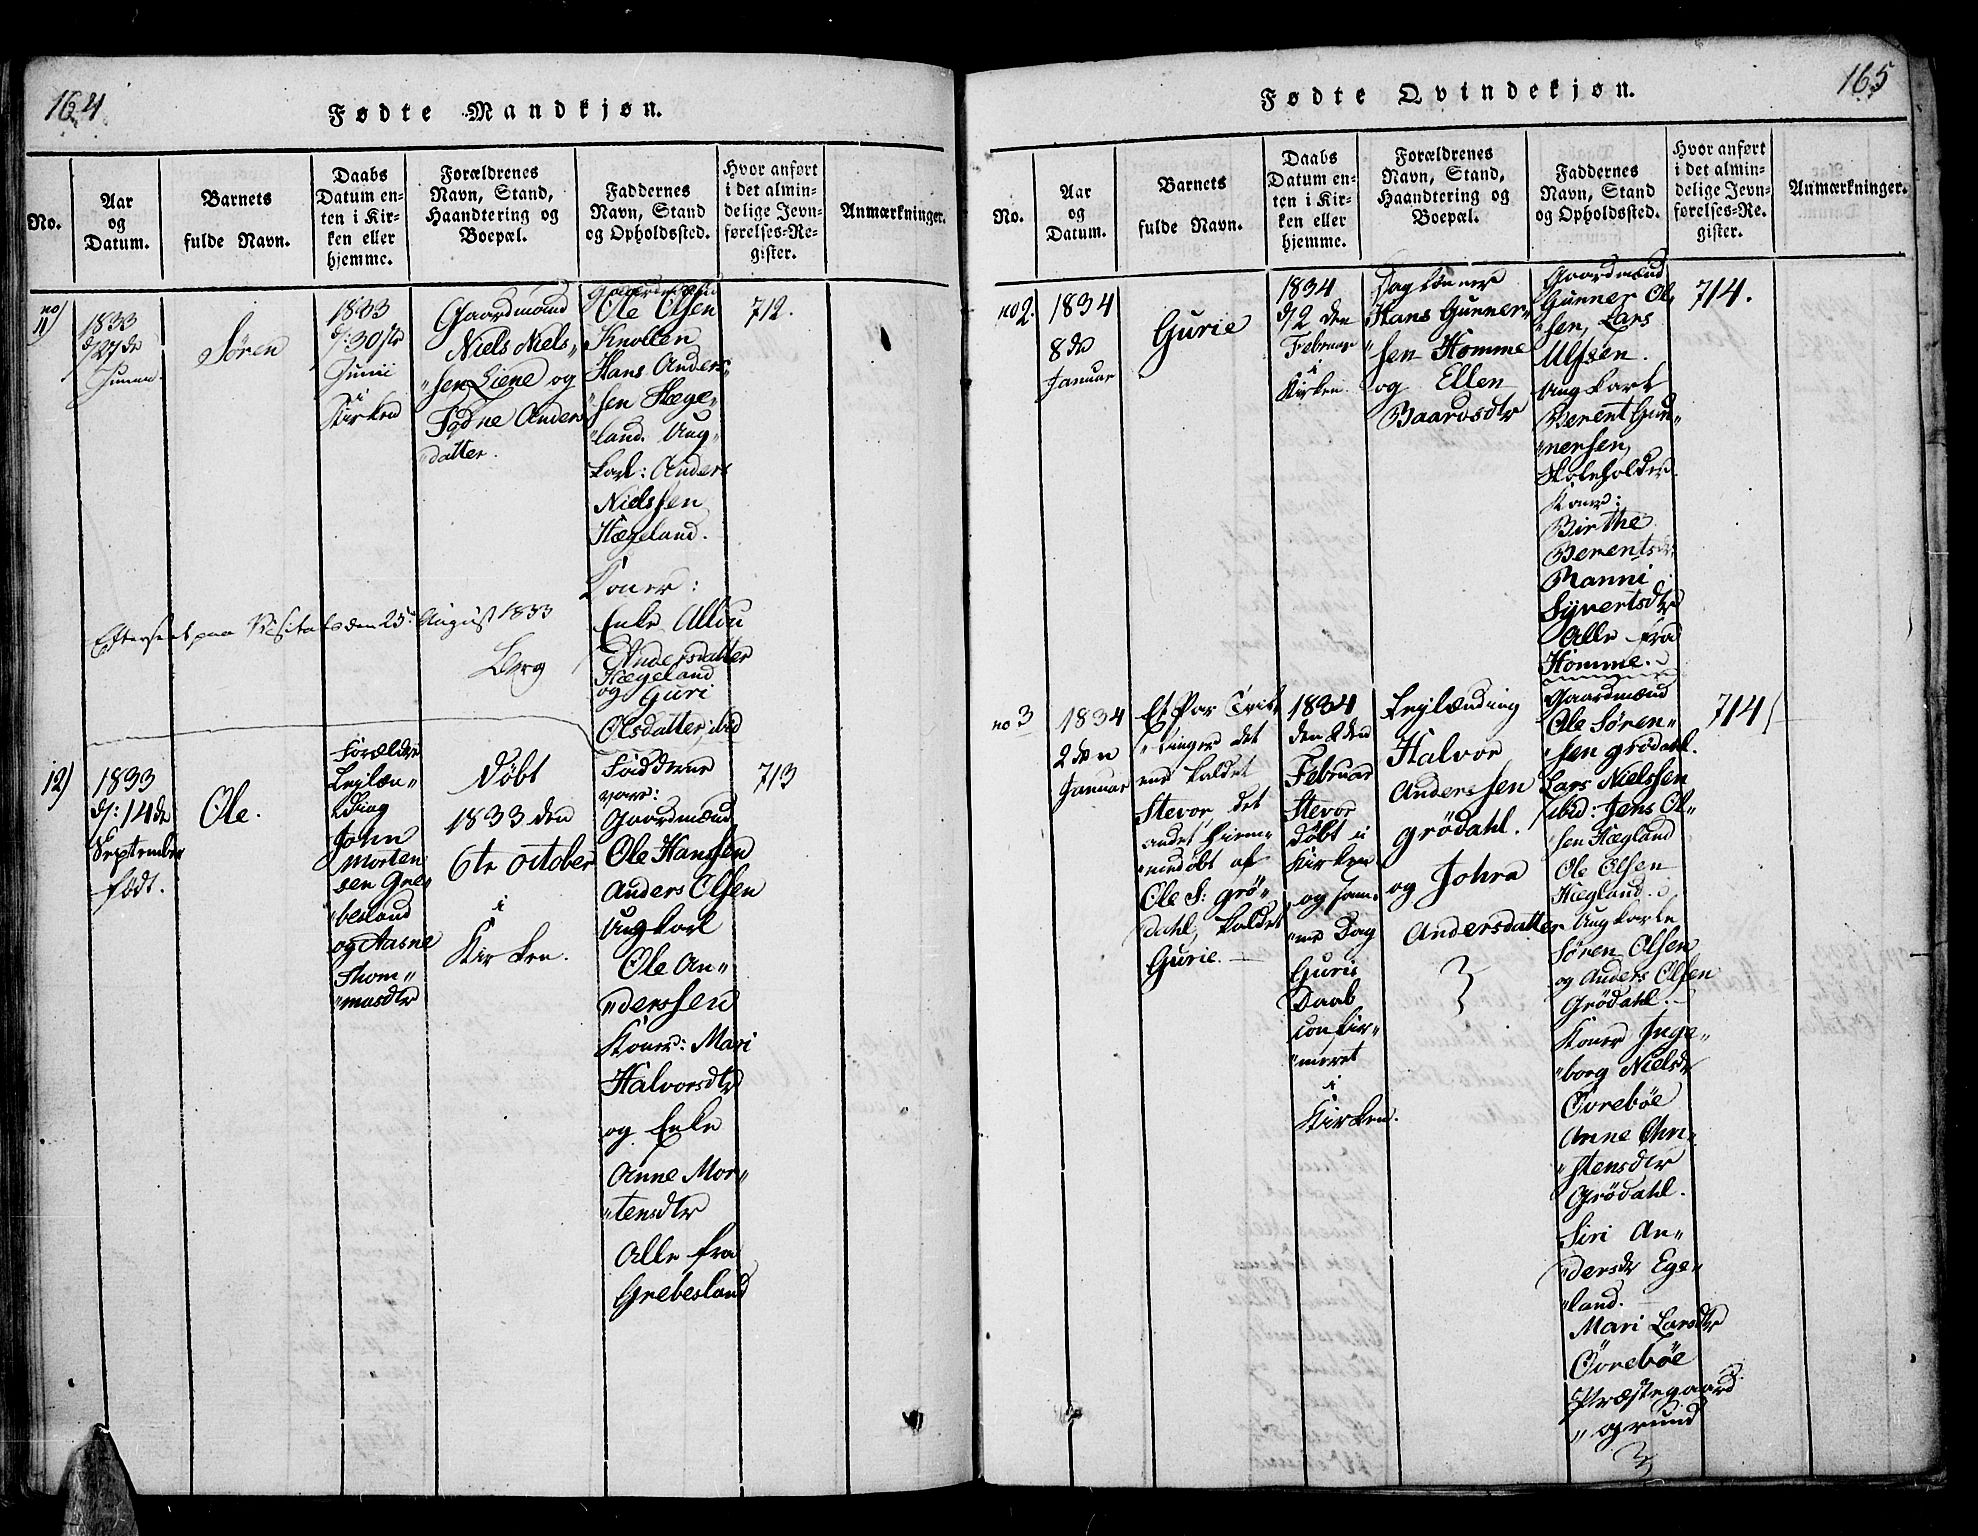 164
Fødte Mandkjøn.
No.
Aar
og
Datum.
Barnets
fulde Navn.
Daabs
Datum en-
ten i Kir-
ken eller
hjemme.
Forældrenes
Navn, Stand,
Haandtering og
Boepæl.
Faddernes
Navn, Stand
og Opholdssted.
Hvor anført
i det almin-
delige Jevn-
førelses-Re-
gister.
Anmærkninger.
no
11)
1833
d/27de
Søren
1833
d: 30te
Junii
i
Kirken
Gaardmand
Niels Niels„
„sen Liene og
Andens
„datter.
Ole Olsen
Knollen
Hans Anders„
„sen Hæge„
„land. Ung„
karl: Anders
Nielssen
Hægeland.
Koner:
Enke
Andersdatter
Hægeland
og Guri
Olsdatter, ibid
712.
Efterseet paa Visitats den 25. August 1833
Berg
12)
1833
d: 14de
September
født.
Ole.
Forældre
Leilæn„
„ding
John
Morten„
sen Gre„
„besland
og Aasne
Thom„
„masdtr
Døbt
1833 den
6te October
i
Kirken.
Fadderne
vare:
Gaardmænd
Ole Hanssen
Anders Olsen
Ungkarl
Ole An„
„derssen
Koner: Mari
Halvorsdtr
og Enke
Anne Mor„
„tensdtr
Alle fra
Grebesland
713
165
Fødte Qvindekjøn.
No.
Aar
og
Datum.
Barnets
fulde Navn.
Daabs
Datum en-
ten i Kir-
ken eller
hjemme.
Forældrenes
Navn, Stand,
Haandtering og
Boepæl.
Faddernes
Navn, Stand
og Opholdssted.
Hvor anført
i det almin-
delige Jevn-
førelses-Re-
gister.
Anmærkninger.
no 2.
1834
8de
Januar
Gurie
1834
d/2 den
Februar
i
Kirken.
Daglønner
Hans Gunner„
„sen Homme
og Ellen
Baardsdtr
Gaardmænd
Gunner Ol„
„sen, Lars
Ulfsen.
Ungkarl
Berent Gun„
„nersen,
Skoleholder.
Koner:
Birthe
Berentsdr
Ranni
Syvertsdtr
Alle fra
Homme.
714.
no 3
1834
2den
Januar
Et Par Tvil
„linger det
ene kaldet
Stevor, det
andet hiem„
„medøbt af
Ole S: Grö„
dahl, kaldet
Gurie.
1834
den 2den
Februar
Stevor
døbt i
Kirken
og sam„
„me Dag
Guris
Daab
confir„
„meret
i
Kirken.
Leilænding
Halvor
Anderssen
Grödahl.
og Johra
Andersdatter
Gaardmænd
Ole Søren„
„sen Grödahl.
Lars Nielssen
ibid: Jens Ol„
„sen Hægland
Ole Olsen
Hægland.
Ungkarle
Søren Olsen
og Anders Olsen
Grödahl.
Koner Inge„
„borg Nielsdr
Övrebøe
Anne Chri„
„stensdtr
Grödahl.
Siri An„
„dersdr Ege„
„land.
Mari Larsdtr
Övrebøe
Præstegaard
„sgrund
714